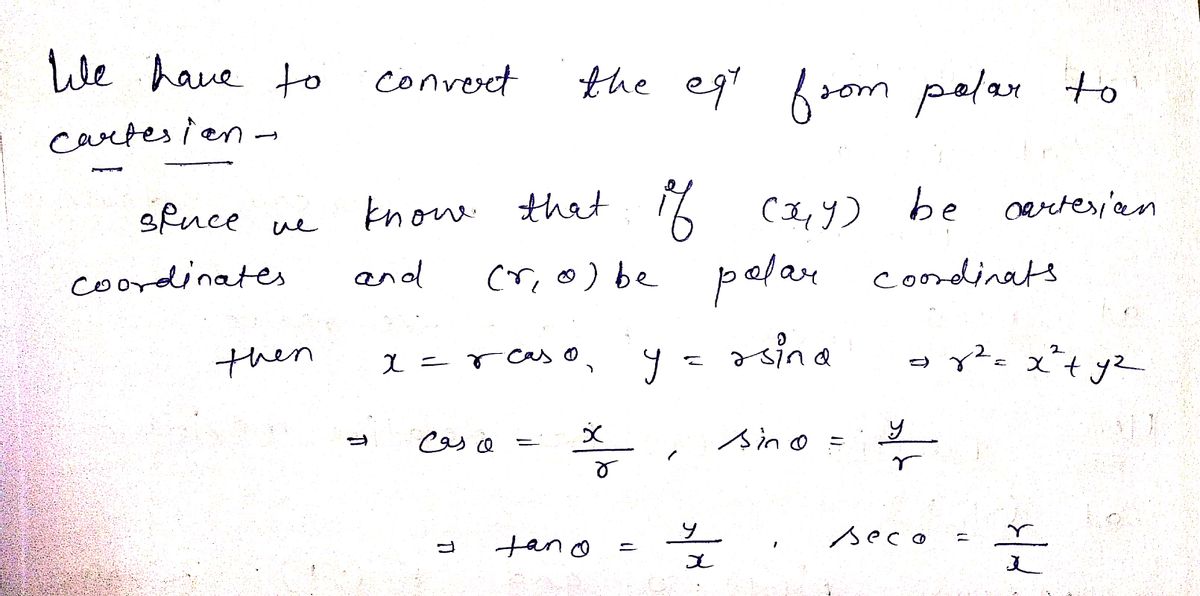 We have to convert the eqⁿ from polar to
cartesian →
Since we know that if (x, y) be cartesian
coordinates and (r, θ) be polar coordinats
then x = r cos θ, y = r sin θ ⇒ r² = x² + y²
⇒ cos θ = x/r, sin θ = y/r
⇒ tan θ = y/x, sec θ = r/x